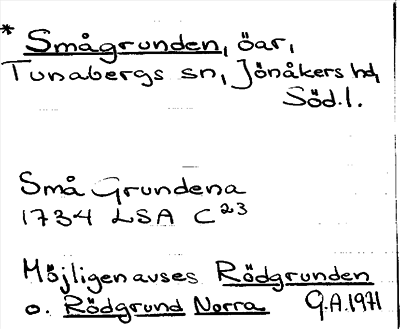 * Smågrunden, öar,
Tunabergs sn, Jönåkers hd,
Söd.l.
Små Grundena
1734 LSA C²³
Möjligen avses Rödgrunden
o. Rödgrund Norra G.A. 1971